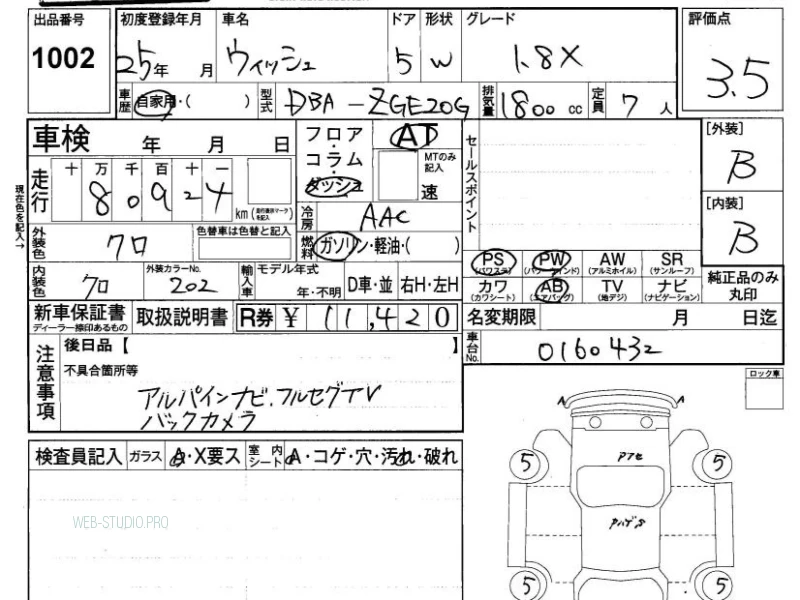 出品番号 1002
初度登録年月 25年 月
車名 ウィッシュ
ドア 5
形状 W
グレード 1.8X
評価点 3.5
車歴 自家用・( )
型式 DBA-ZGE20G
排気量 1800 cc
定員 7 人
車検 年 月 日
走行 十 万 千 百 十 一
8 0 9 2 4 km (走行距離マークを記入)
現在色を記入→
フロア・コラム・ダッシュ
AT
MTのみ記入
速
セールスポイント
[外装] B
[内装] B
冷房 AAC
燃料 ガソリン・軽油・( )
外装色 クロ
色替車は色替と記入
内装色 クロ
外装カラーNo. 202
輸入車 モデル年式 年・不明 D車・並 右H・左H
PS (パワステ) PW (パワーウインド) AW (アルミホイル) SR (サンルーフ)
カワ (カワシート) AB (エアバッグ) TV (地デジ) ナビ (ナビゲーション)
純正品のみ丸印
新車保証書 ディーラー捺印あるもの
取扱説明書
R券 ¥ 11,420
名変期限 月 日迄
車台No. 0160432
注意事項
後日品【 】
不具合箇所等
アルパインナビ.フルセグTV
バックカメラ
ロック車
検査員記入 ガラス A・X要ス 室内シート A・コゲ・穴・汚れ・破れ
A A
5 5
5 5
WEB-STUDIO.PRO